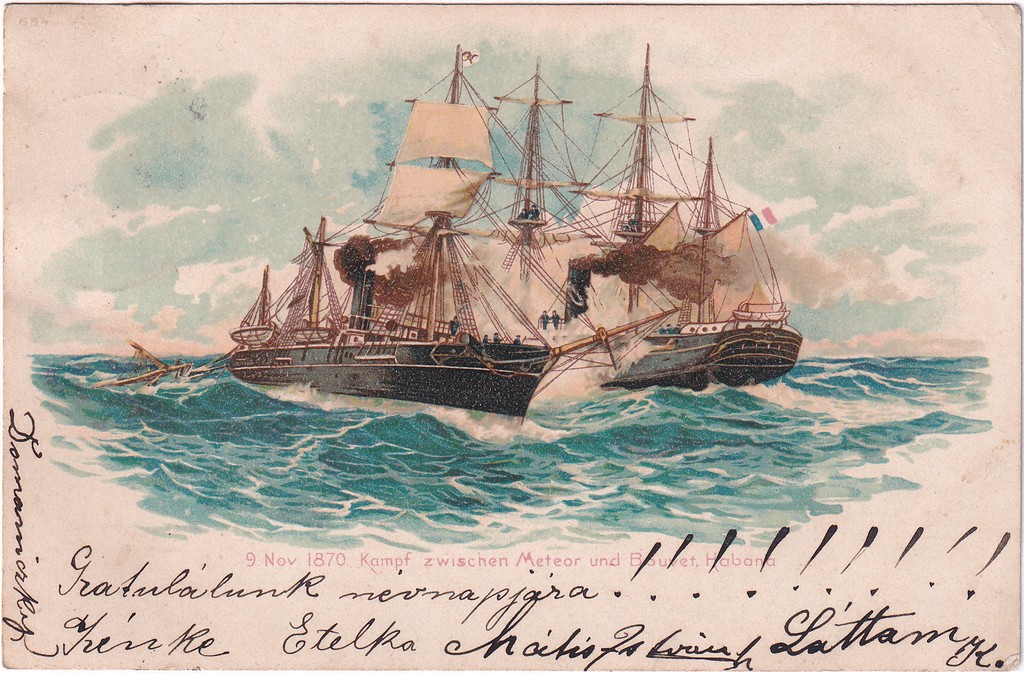 654
9 Nov 1870. Kampf zwischen Meteor und Bouvet, Habana
Gratulálunk névnapjára.!.!.!.!.!.!.!.!
Etelka Mátis István Láttam K.